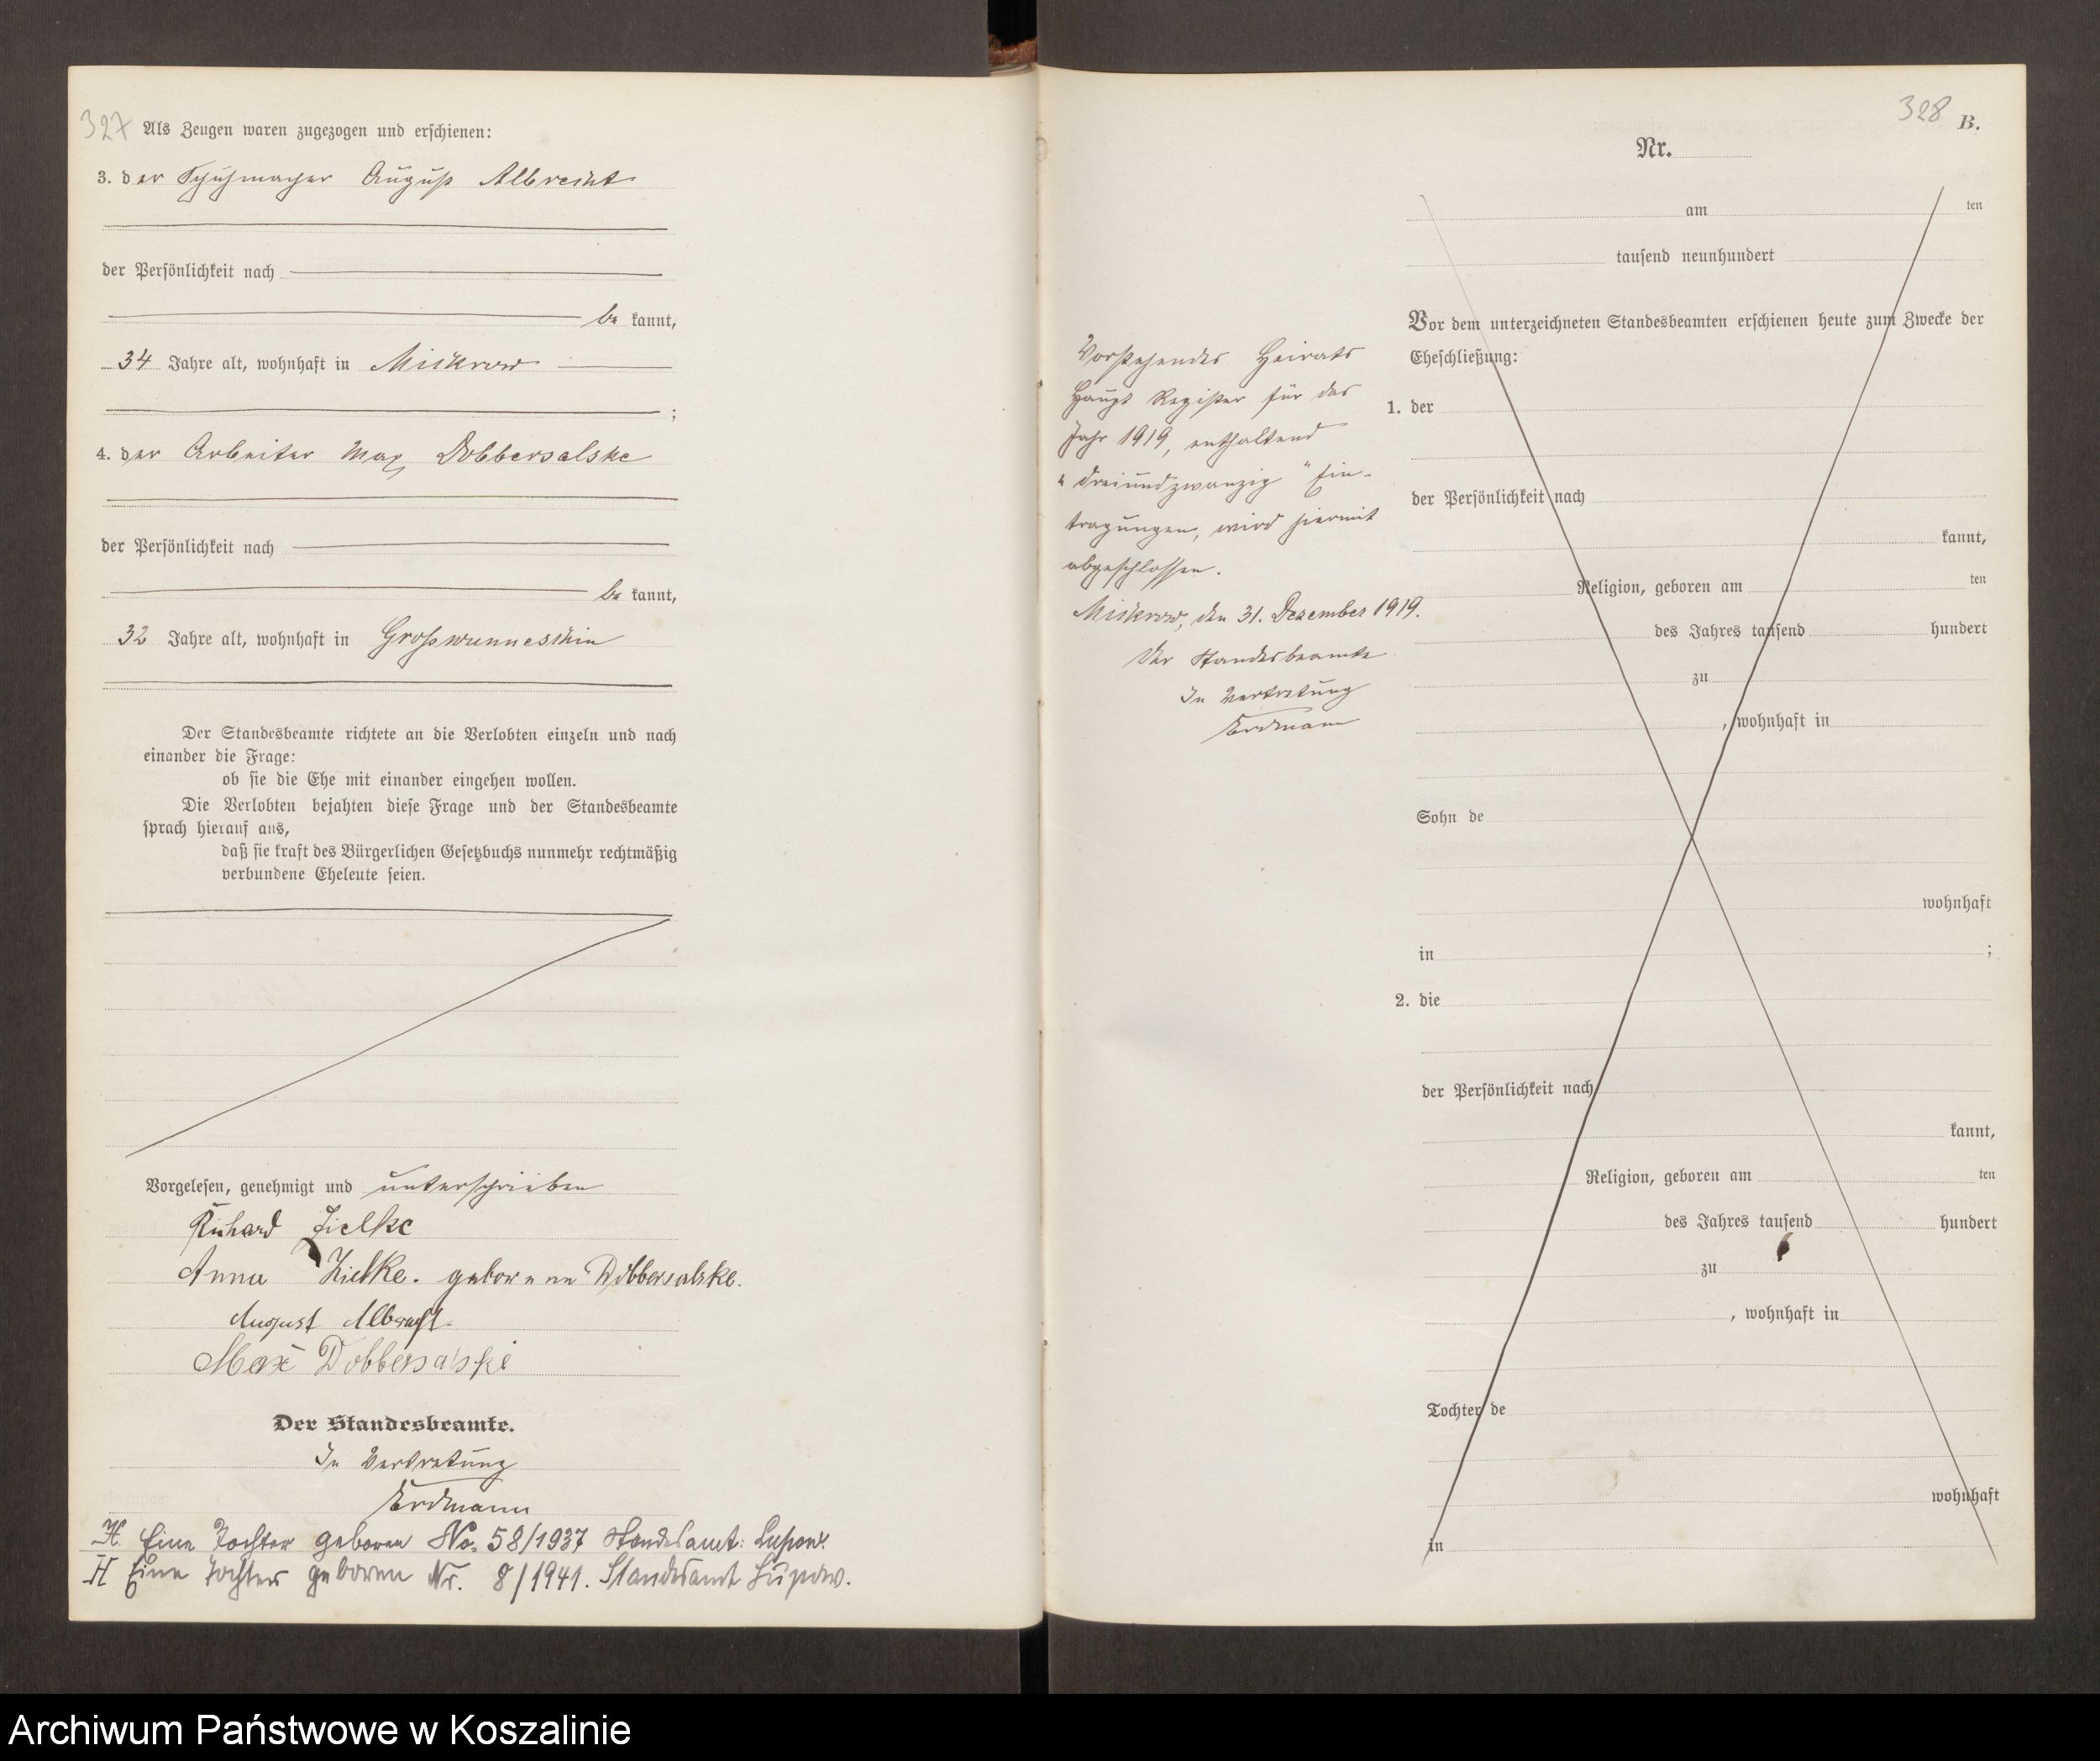 327 Als Zeugen waren zugezogen und erschienen:
3. der Schuhmacher August Albrecht
der Persönlichkeit nach
be kannt,
34 Jahre alt, wohnhaft in Mickrow
;
4. der Arbeiter Max Dobbersalske
der Persönlichkeit nach
be kannt,
32 Jahre alt, wohnhaft in Großwunneschin
Der Standesbeamte richtete an die Verlobten einzeln und nach
einander die Frage:
ob sie die Ehe mit einander eingehen wollen.
Die Verlobten bejahten diese Frage und der Standesbeamte
sprach hierauf aus,
daß sie kraft des Bürgerlichen Gesetzbuchs nunmehr rechtmäßig
verbundene Eheleute seien.
Vorgelesen, genehmigt und unterschrieben
Richard Zielke
Anna Zielke. geborene Dobbersalske.
August Albrecht
Max Dobbersalski
Der Standesbeamte.
In Vertretung
Erdmann
H. Eine Tochter geboren No. 58/1937 Standesamt: Lupow.
H Eine Tochter geboren Nr. 8/1941. Standesamt Lupow.
328 B.
Nr.
am ten
tausend neunhundert
Vor dem unterzeichneten Standesbeamten erschienen heute zum Zwecke der
Eheschließung:
1. der
der Persönlichkeit nach
kannt,
Religion, geboren am ten
des Jahres tausend hundert
zu
, wohnhaft in
Sohn de
wohnhaft
in ;
2. die
der Persönlichkeit nach
kannt,
Religion, geboren am ten
des Jahres tausend hundert
zu
, wohnhaft in
Tochter de
wohnhaft
in
Vorstehendes Heirats
Haupt Register für das
Jahr 1919, enthaltend
"dreiundzwanzig" Ein-
tragungen, wird hiermit
abgeschlossen.
Mickrow, den 31. Dezember 1919.
Der Standesbeamte
In Vertretung
Erdmann
Archiwum Państwowe w Koszalinie